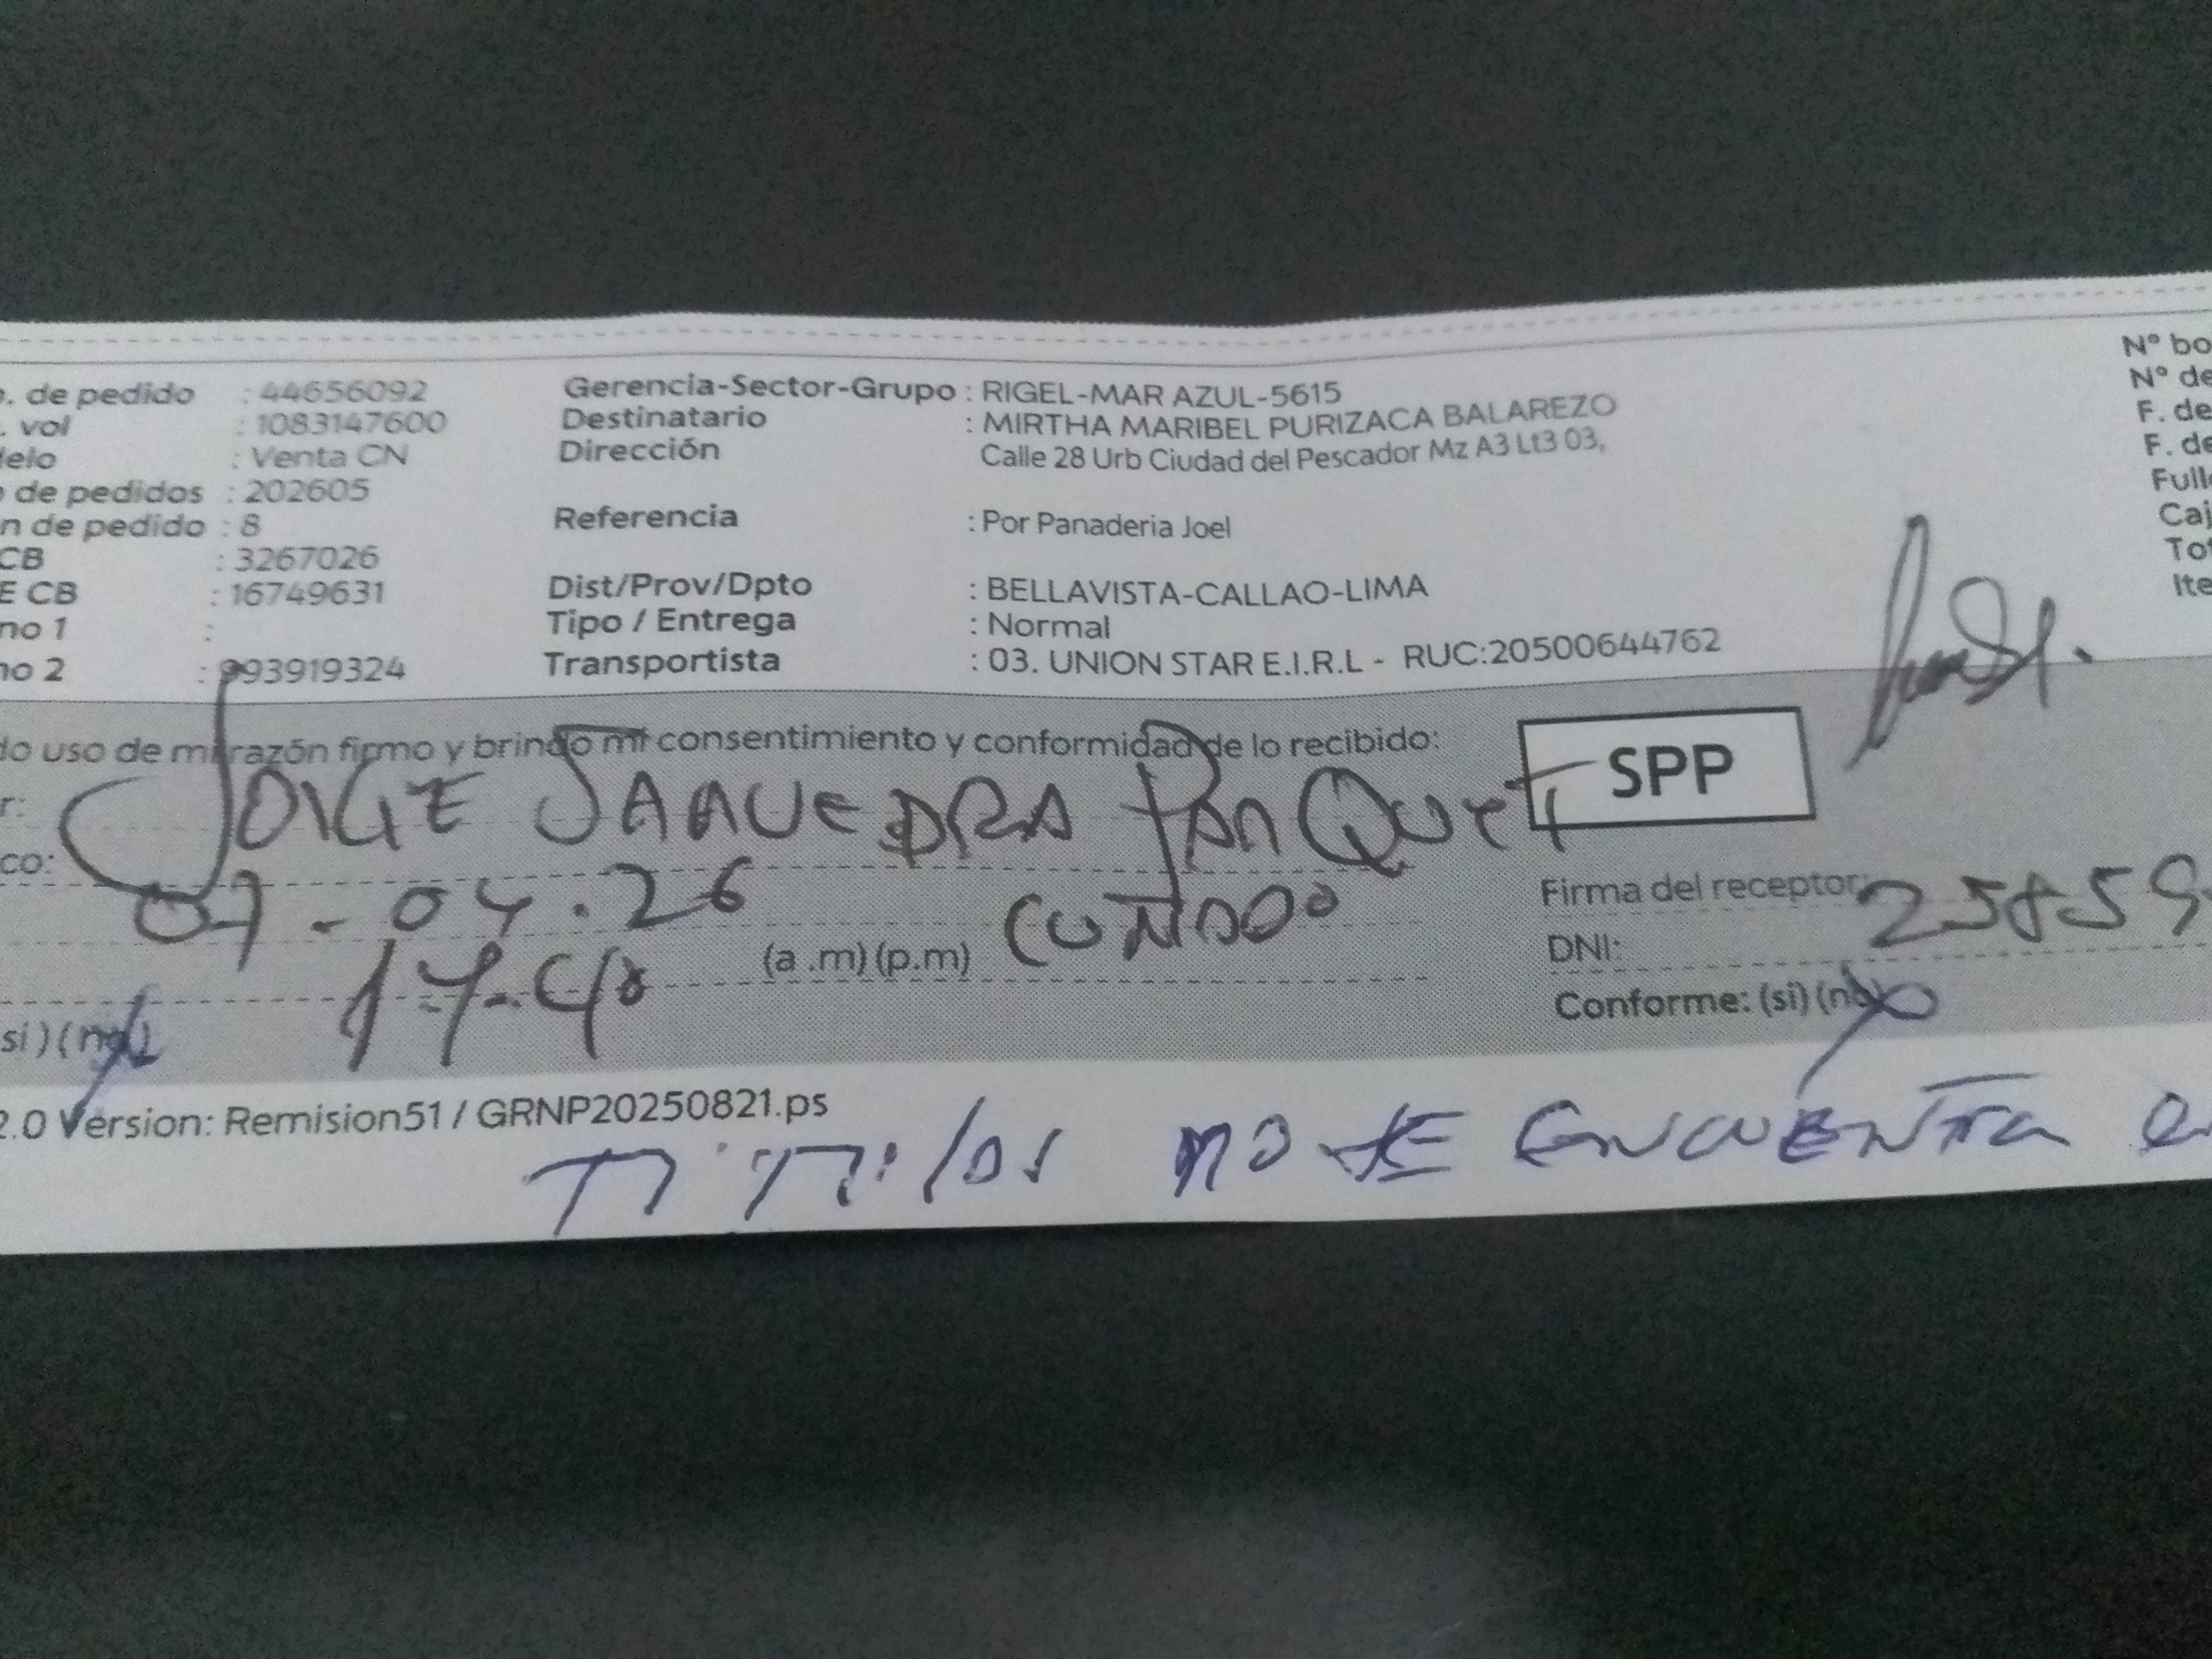 . de pedido : 44656092 Gerencia-Sector-Grupo : RIGEL-MAR AZUL-5615 N° bo
. vol : 1083147600 Destinatario : MIRTHA MARIBEL PURIZACA BALAREZO N° de
elo : Venta CN Dirección Calle 28 Urb Ciudad del Pescador Mz A3 Lt3 03, F. de
de pedidos : 202605 F. de
n de pedido : 8 Referencia : Por Panaderia Joel Full
CB : 3267026 Caj
E CB : 16749631 Dist/Prov/Dpto : BELLAVISTA-CALLAO-LIMA Tot
no 1 : Tipo / Entrega : Normal Ite
no 2 : 993919324 Transportista : 03. UNION STAR E.I.R.L - RUC:20500644762
do uso de mi razón firmo y brindo mi consentimiento y conformidad de lo recibido: SPP
r: JORGE SAAVEDRA
co:
07-04.26 Firma del receptor:
17-40 (a .m) (p.m) DNI: 25859
si ) ( no ) Conforme: (si) (no)
2.0 Version: Remision51 / GRNP20250821.ps
NO SE ENCUENTRA